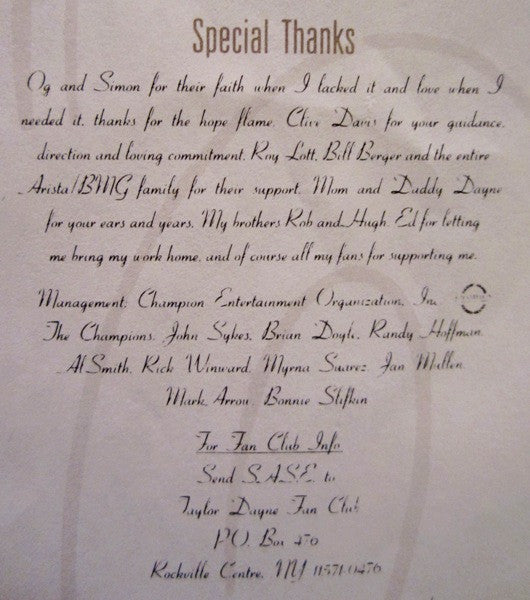 Special Thanks
Og and Simon for their faith when I lacked it and love when I
needed it, thanks for the hope flame. Clive Davis for your guidance,
direction and loving commitment. Roy Lott, Bill Berger and the entire
Arista/BMG family for their support. Mom and Daddy Dayne
for your ears and years. My brothers Rob and Hugh. Ed for letting
me bring my work home, and of course all my fans for supporting me.
Management: Champion Entertainment Organization, Inc.
The Champions, John Sykes, Brian Doyle, Randy Hoffman,
Al Smith, Rick Winward, Myrna Suarez, Jan Mullen,
Mark Arrow, Bonnie Slifkin
For Fan Club Info
Send S.A.S.E. to
Taylor Dayne Fan Club
P.O. Box 476
Rockville Centre, NY 11571-0476